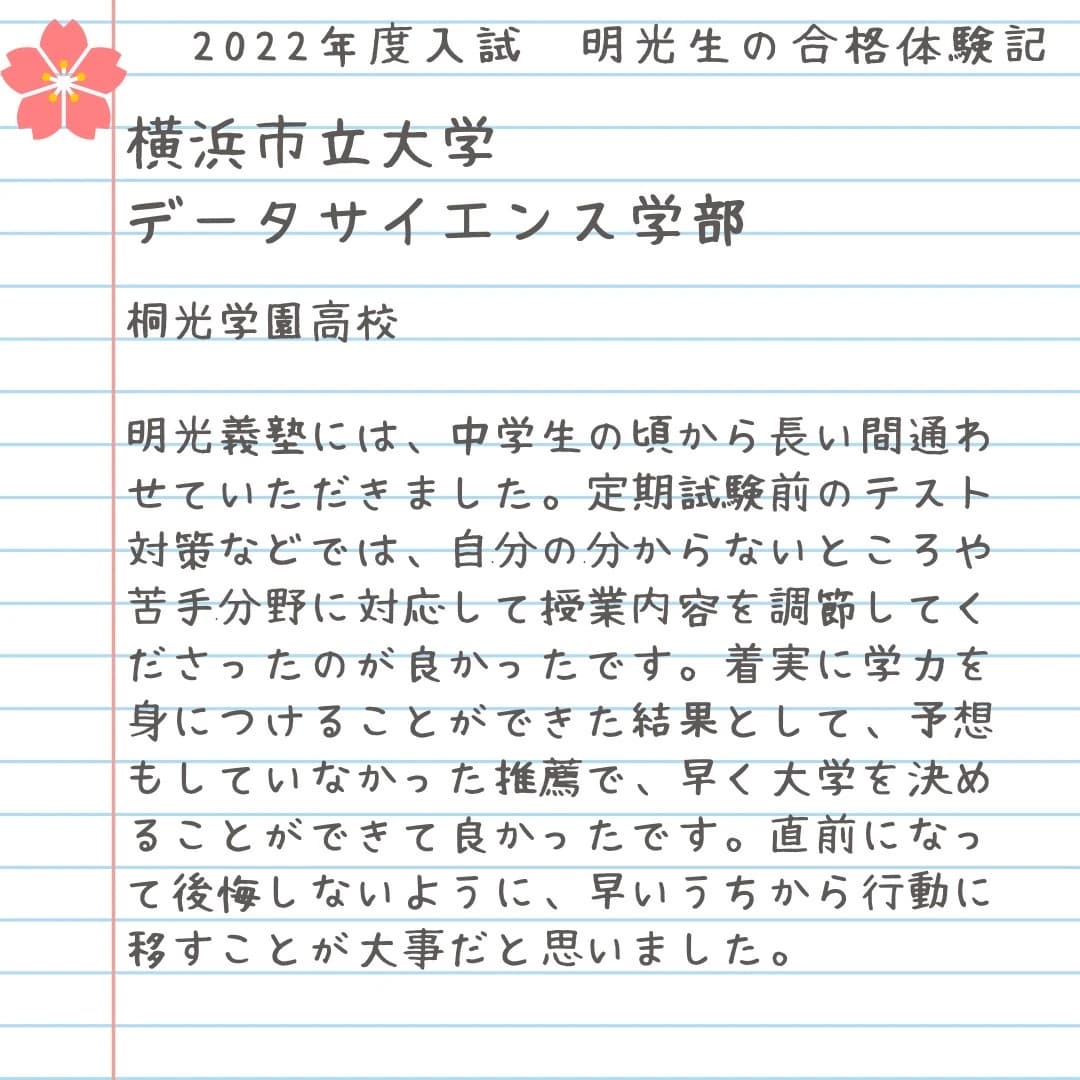 2022年度入試　明光生の合格体験記
横浜市立大学
データサイエンス学部
桐光学園高校
明光義塾には、中学生の頃から長い間通わ
せていただきました。定期試験前のテスト
対策などでは、自分の分からないところや
苦手分野に対応して授業内容を調節してく
ださったのが良かったです。着実に学力を
身につけることができた結果として、予想
もしていなかった推薦で、早く大学を決め
ることができて良かったです。直前になっ
て後悔しないように、早いうちから行動に
移すことが大事だと思いました。